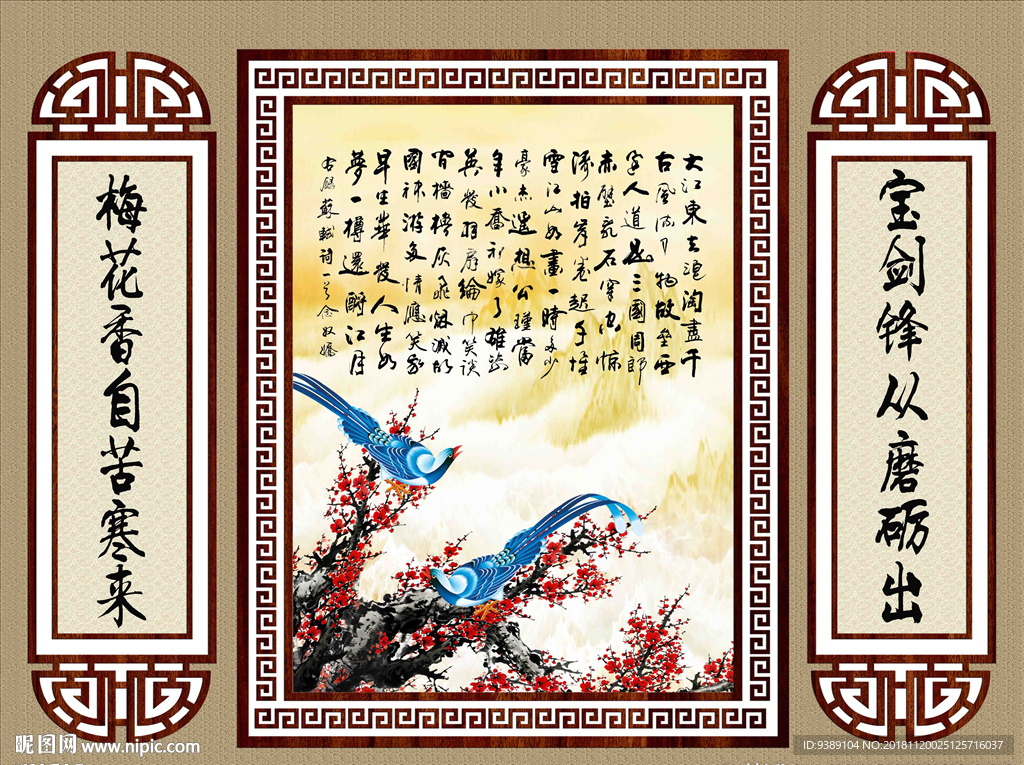 宝剑锋从磨砺出
大江東去浪淘盡千
古風流人物故壘西
邊人道是三國周郎
赤壁乱石穿空惊
濤拍岸卷起千堆
雪江山如畫一時多少
豪杰遥想公瑾當
年小喬初嫁了雄姿
英發羽扇綸巾笑談
間檣櫓灰飛烟滅故
國神游多情應笑我
早生華發人生如
夢一樽還酹江月
蘇軾詩一首念奴嬌
梅花香自苦寒来
昵图网 www.nipic.com
ID:9389104 NO:20181120025125716037